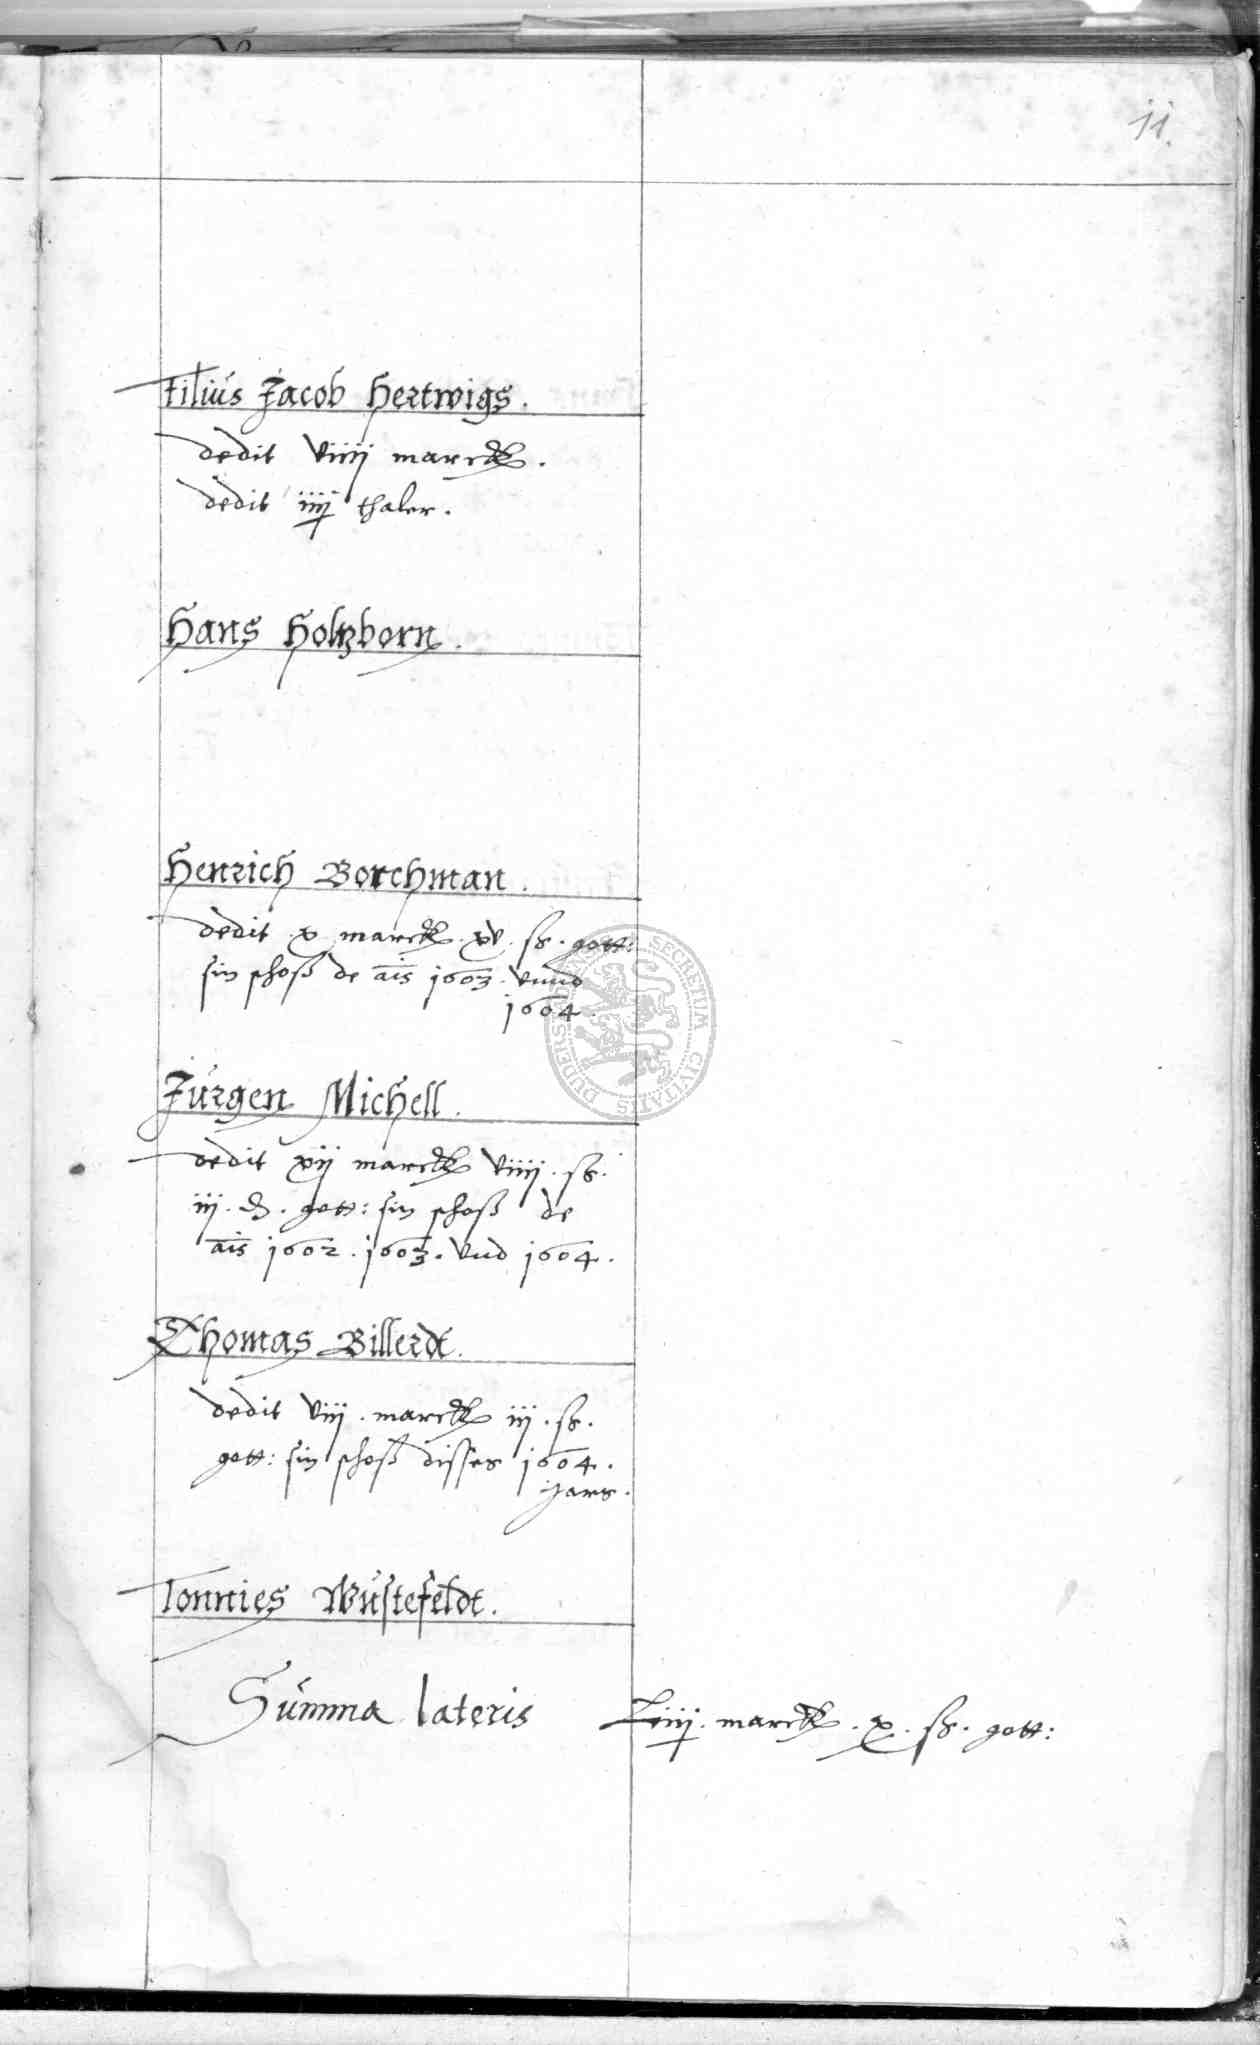 11.
Filius Jacob Hertwigs.
dedit viiij marck.
dedit iiij thaler.
Hans Holtzborn.
Henrich Borchman.
dedit x marck. xv. ß. gott:
sin schoß de ais 1603. vnnd
1604.
Jürgen Michell.
dedit xij marck viiij. ß.
iij. ₰. gott: sin schoß de
ais 1602. 1603. vnd 1604.
Thomas Billerdt.
dedit viij. marck iij. ß.
gott: sin schoß disses 1604.
jars.
Tonnies Wüstefeldt.
Summa lateris marck. x. ß. gott:
SECRETUM CIVITATIS DUDERSTADENSIS